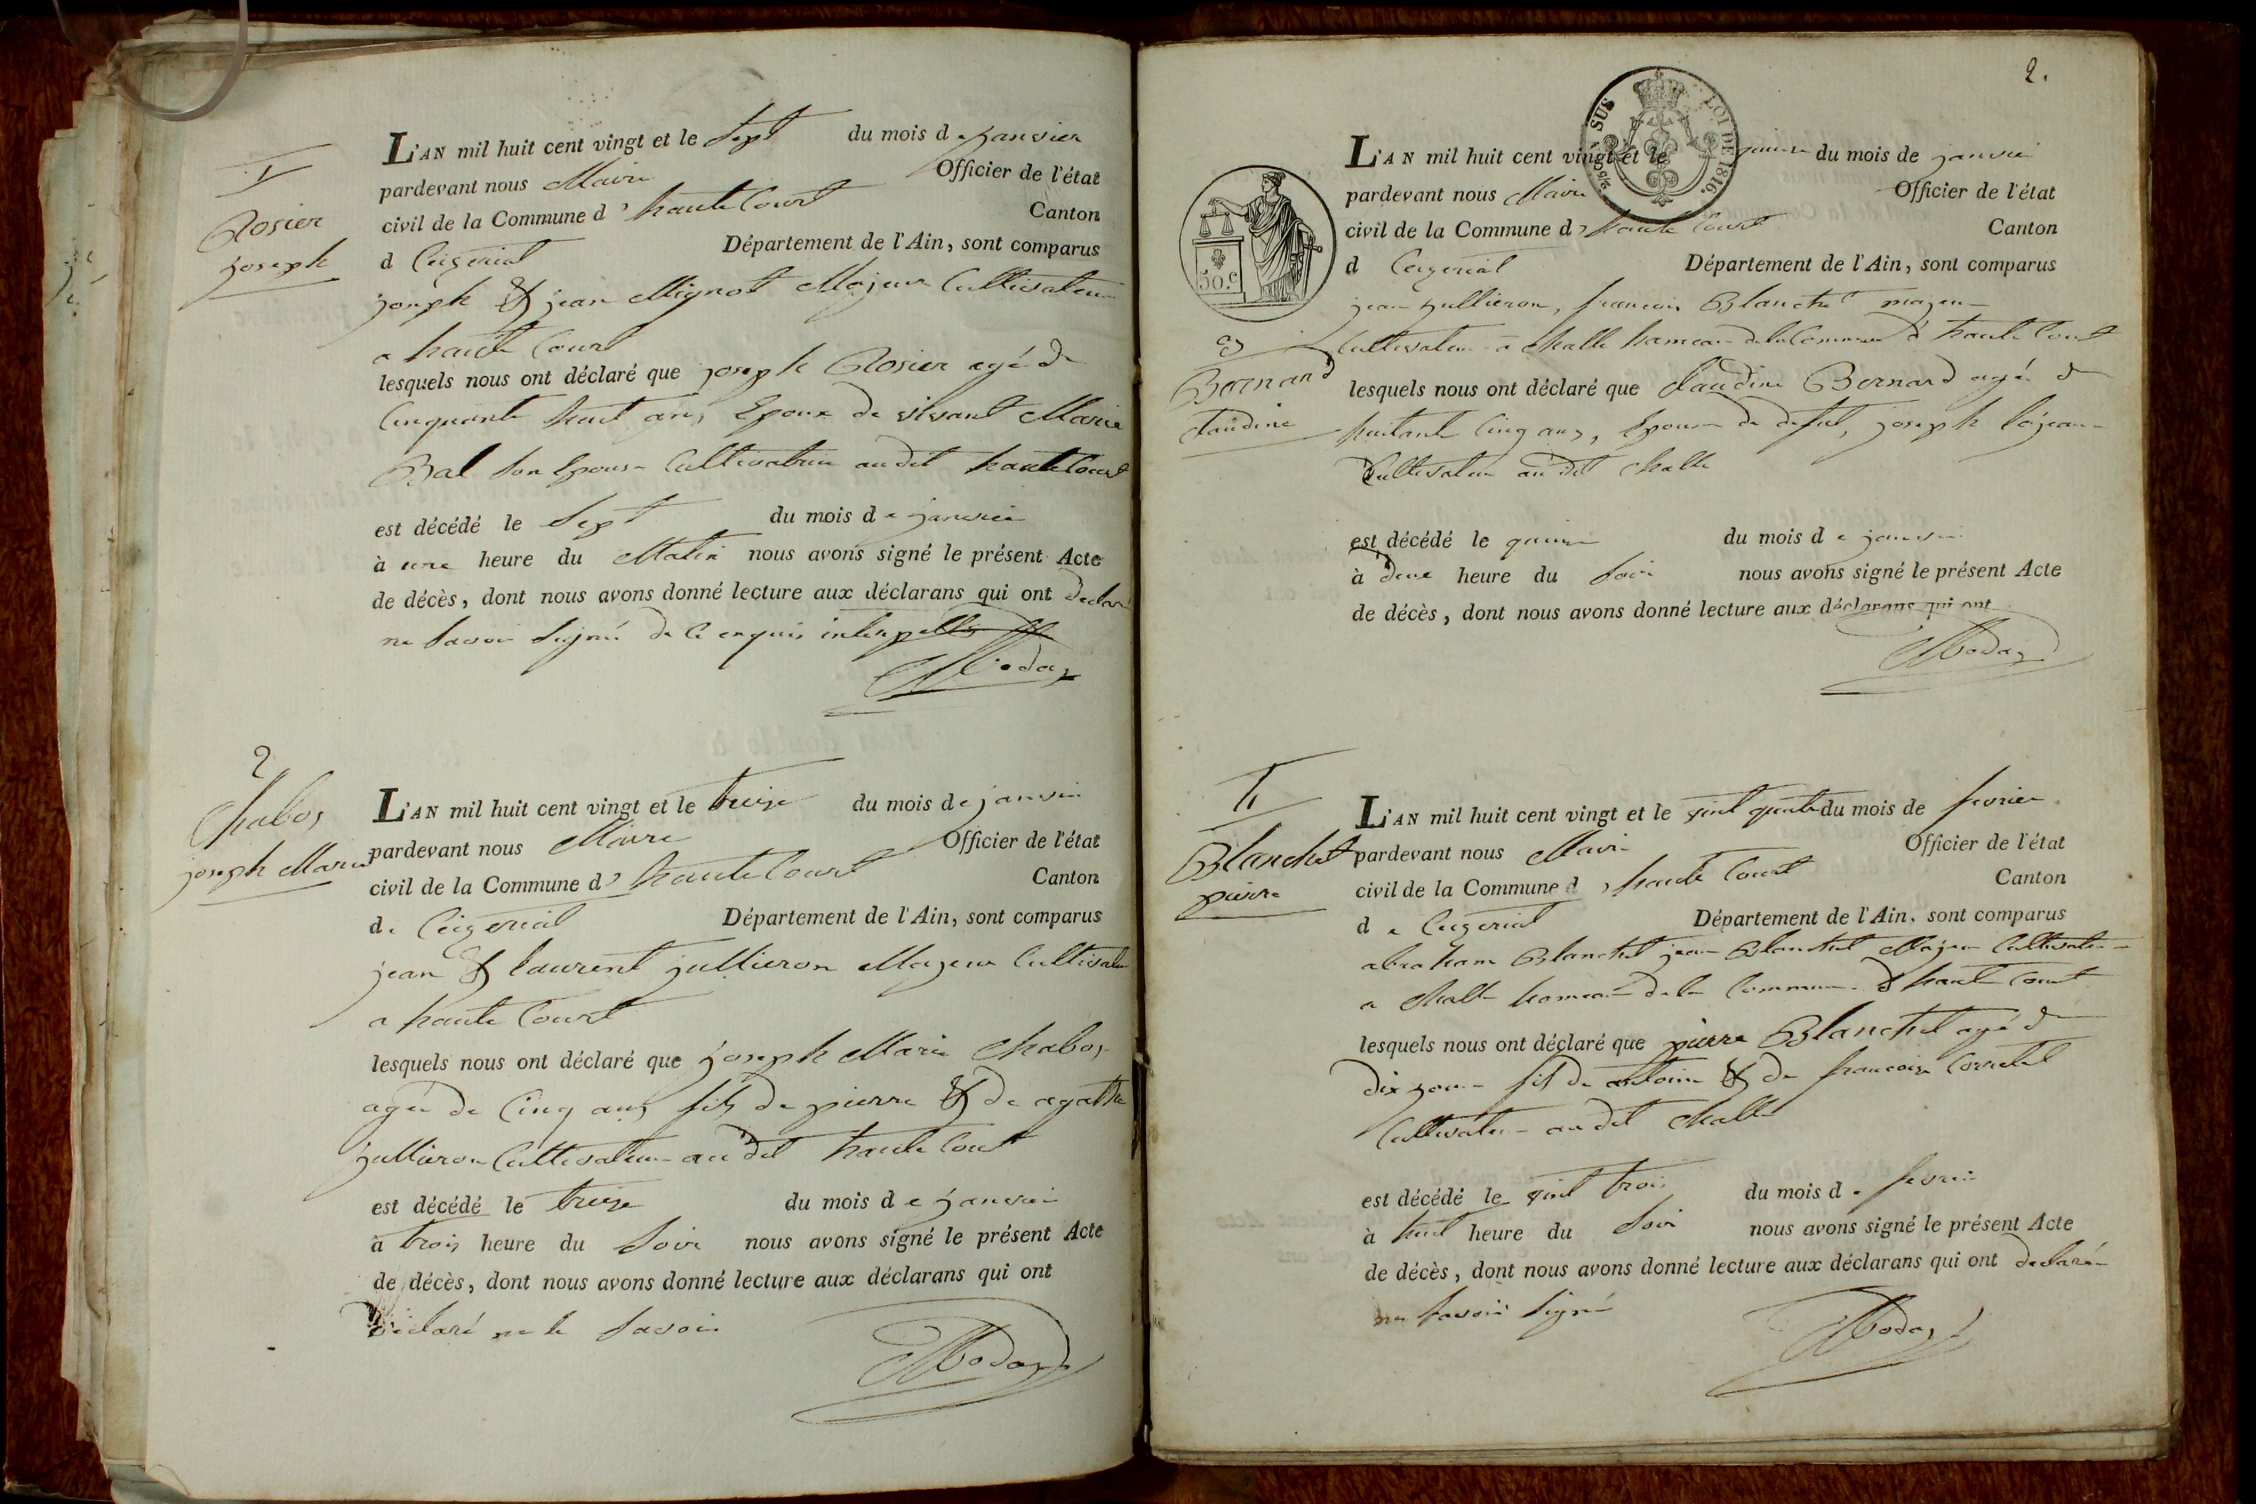 1
Rosier
joseph
L'AN mil huit cent vingt et le sept du mois de janvier
pardevant nous Maire Officier de l'état
civil de la Commune d'hautecourt Canton
d Ceizeriat Département de l'Ain, sont comparus
joseph & jean Mignot Majeur Cultivateur
a haute Court
lesquels nous ont déclaré que joseph Rosier agé de
Cinquante huit ans, Epoux de vivant Marie
Bal son Epouse Cultivatrice audit hautecourt
est décédé le Sept du mois de janvier
à une heure du Matin nous avons signé le présent Acte
de décès, dont nous avons donné lecture aux déclarans qui ont declaré
ne savoir signé de ce enquis interpellés
2
Chabos
joseph Marie
L'AN mil huit cent vingt et le treize du mois de janvier
pardevant nous Maire Officier de l'état
civil de la Commune d'haute Court Canton
de Ceizeriat Département de l'Ain, sont comparus
jean & laurent jullieron Majeur Cultivateur
a haute Court
lesquels nous ont déclaré que joseph Marie Chabos
agée de Cinq ans fils de pierre & de agathe
jullieron Cultivateur audit haute Court
est décédé le treize du mois de janvier
à trois heure du Soir nous avons signé le présent Acte
de décès, dont nous avons donné lecture aux déclarans qui ont
declaré ne le savoir
2.
SUS
LOI DE 1816.
50.c
L'AN mil huit cent vingt et le quinze du mois de janvier
pardevant nous Maire Officier de l'état
civil de la Commune d'haute Court Canton
d Ceizeriat Département de l'Ain, sont comparus
jean jullieron, francois Blanchet majeur
Cultivateur a Challe hameau de la Commune d'haute Court
3
Bernard
Claudine
lesquels nous ont déclaré que Claudine Bernard agée de
huitante Cinq ans, Epouse de defut, joseph
Cultivateur audit Challe
est décédé le quinze du mois de janvier
à deux heure du Soir nous avons signé le présent Acte
de décès, dont nous avons donné lecture aux déclarans qui ont
4
Blanchet
pierre
L'AN mil huit cent vingt et le vint quatre du mois de fevrier
pardevant nous Maire Officier de l'état
civil de la Commune d'haute Court Canton
de Ceizeriat Département de l'Ain, sont comparus
abraham Blanchet jean Blanchet Majeur Cultivateur
a Challe hameau de la Commune d'haute Court
lesquels nous ont déclaré que pierre Blanchet agé de
dix jour fils de antoine & de francoise
Cultivateur audit Challe
est décédé le vint trois du mois de fevrier
à huit heure du Soir nous avons signé le présent Acte
de décès, dont nous avons donné lecture aux déclarans qui ont declaré
ne savoir signé